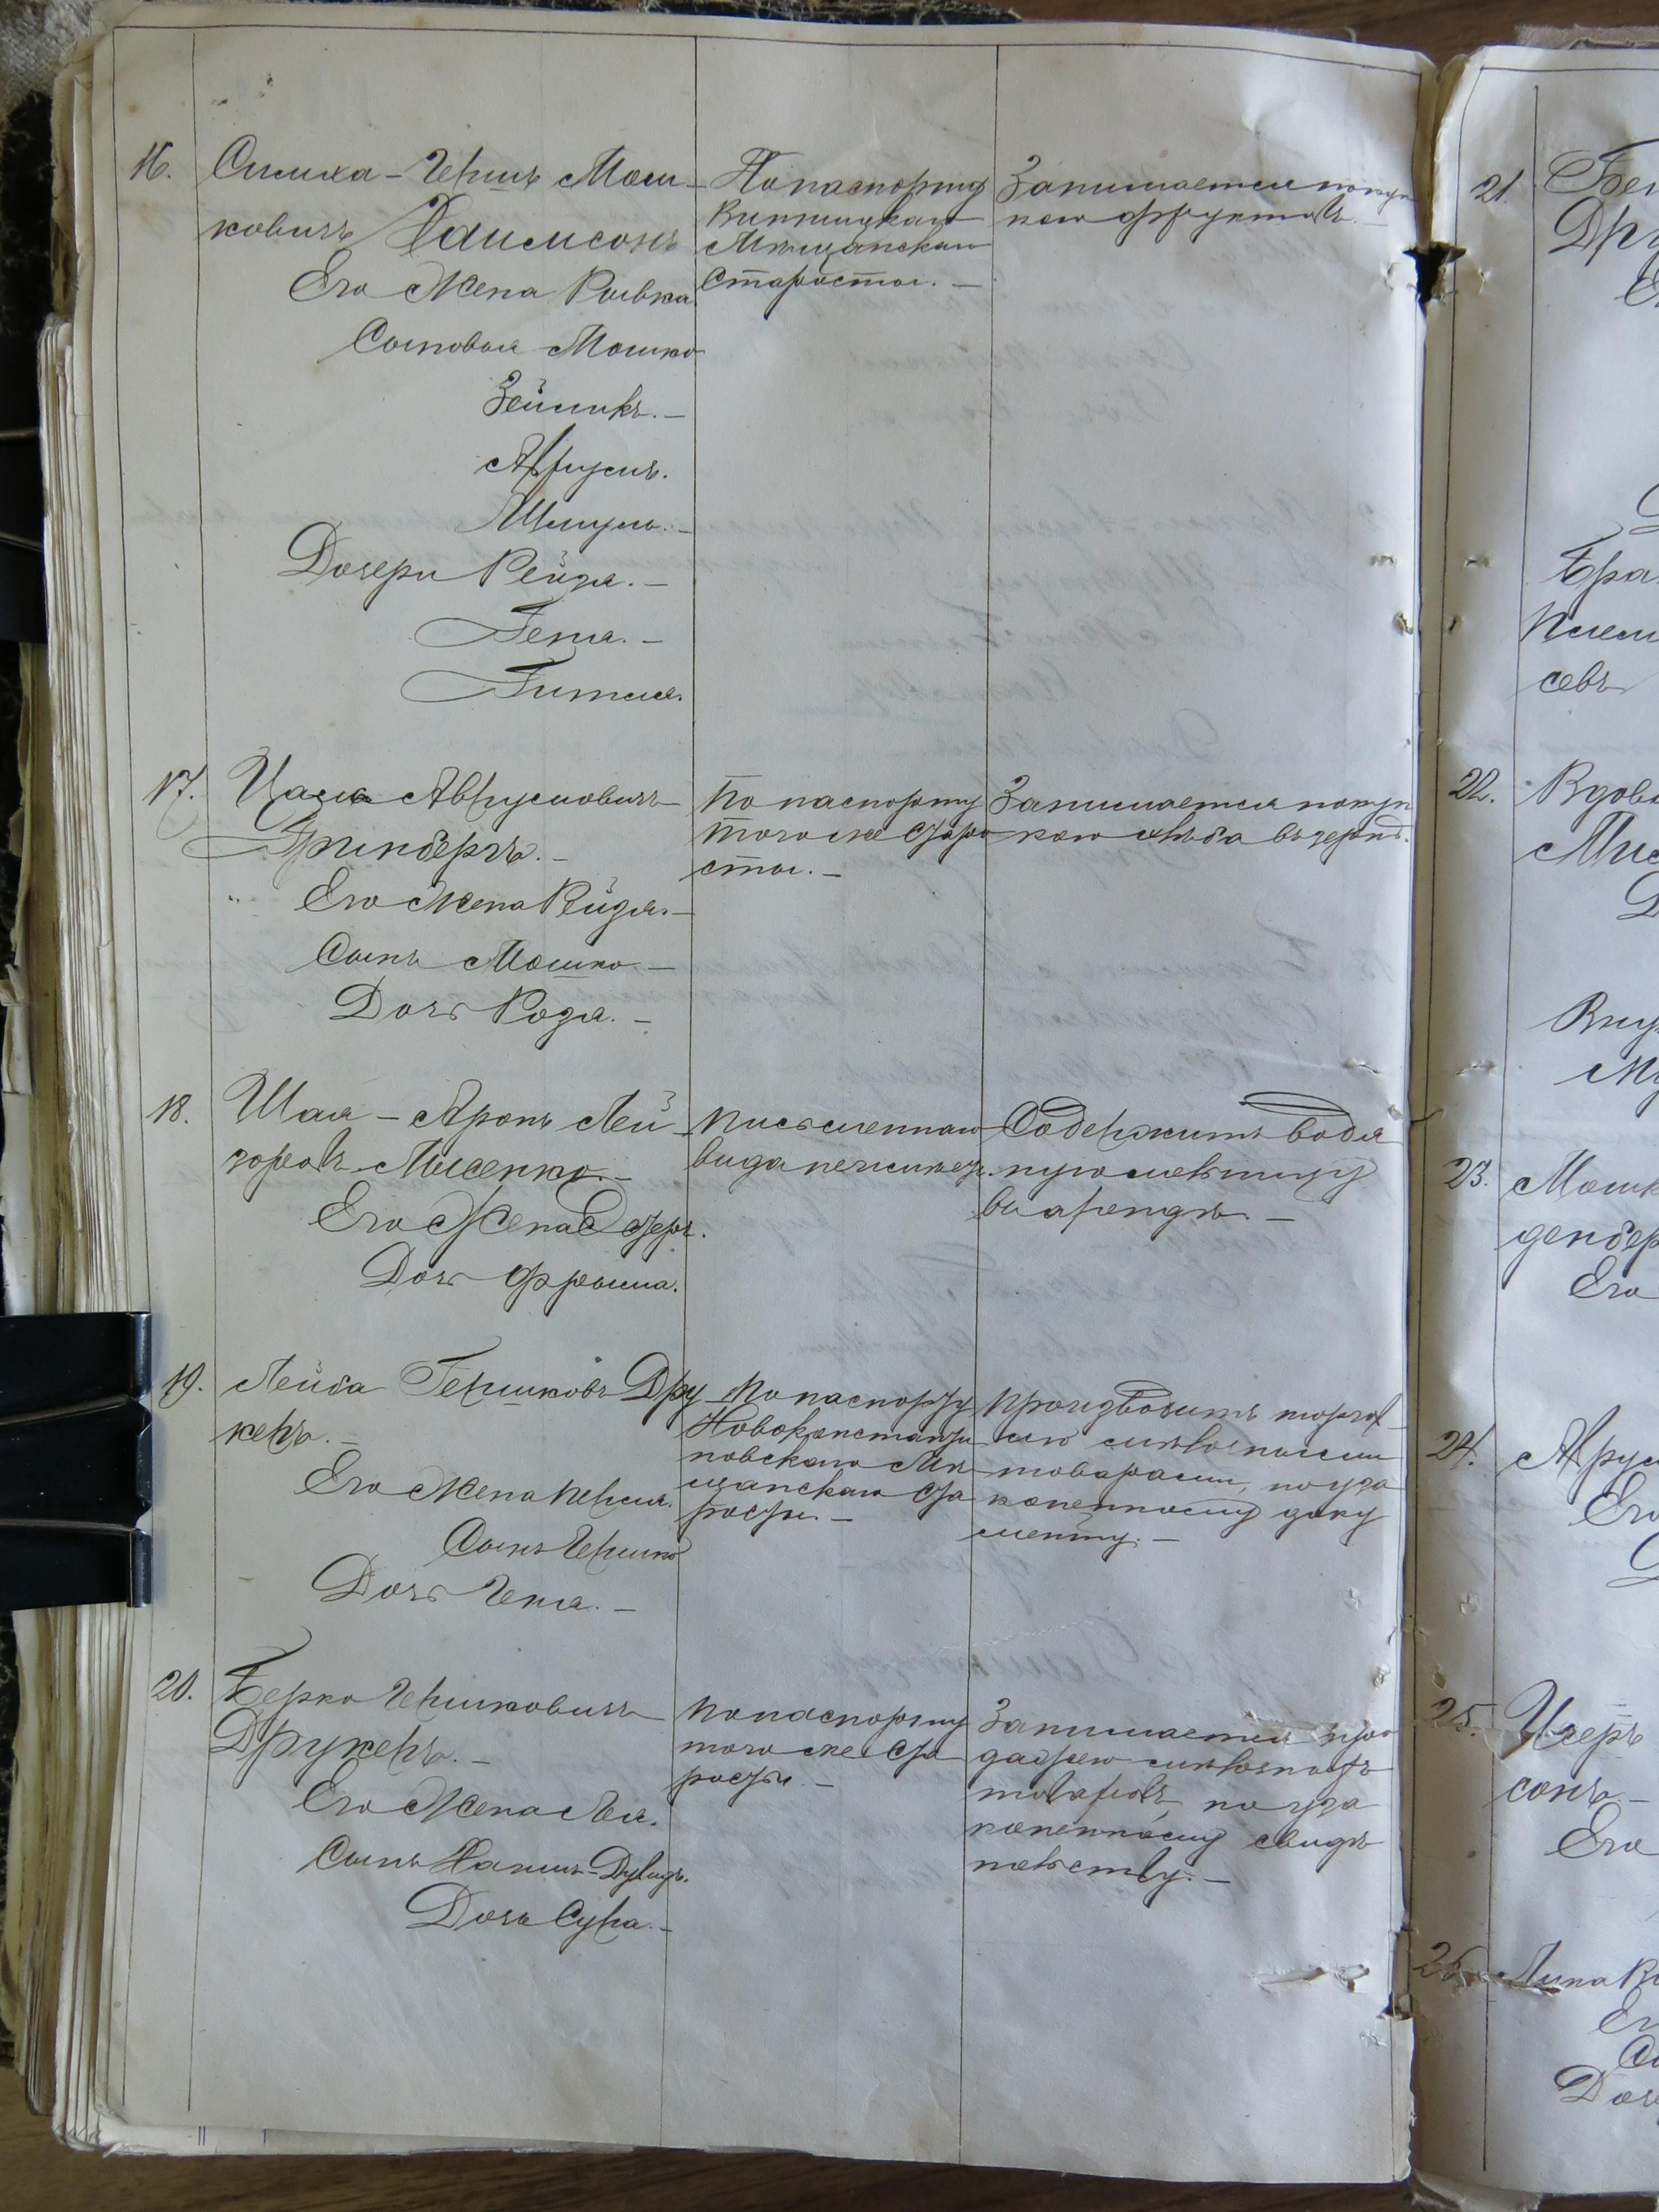 16. Симха-Гершъ Мош-
ковичъ Хаимсонъ
Его Жена Рывка
Сыновья Мошко
Зейликъ. —
Аврумъ.
Шмуль. —
Дочери Рейзя. —
Геня. —
Гитля.
По паспорту
Винницкаго
Мѣщанскаго
Старосты. —
Занимается покуп
кою фруктовъ. —
17. Аврумовичъ
Гринбергъ. —
Его Жена Рейзя. —
Сынъ Мошко. —
Дочь Розя. —
По паспорту
того же Старо
сты. —
Занимается покуп
кою хлѣба въ зернѣ.
18. Шая-Аронъ Лей-
зоровъ
Его Жена
Дочь Фрыма.
Письменнаго
вида
Содержитъ водя
ную мельницу
въ арендѣ. —
19. Лейба Гершковъ Дру
керъ. —
Его Жена Перля.
Сынъ Гершко
Дочь Геня. —
По паспорту
Новоконстанти
новскаго Мѣ
щанскаго Ста
росты. —
Производитъ торгов-
лю мѣлочными
товарами, по уза
коненному доку
менту. —
20. Берко Гершковичъ
Друкеръ. —
Его Жена Лея.
Сынъ Хаимъ-Дувидъ.
Дочь Сура. —
По паспорту
того же Ста
росты. —
Занимается про
дажею мѣлочныхъ
товаровъ, по уза
коненному свидѣ
тельству. —
21.
22. Вдова
23. Мошк
денбер
Его
24. Аврум
Его
25.
сонъ —
Его
26.